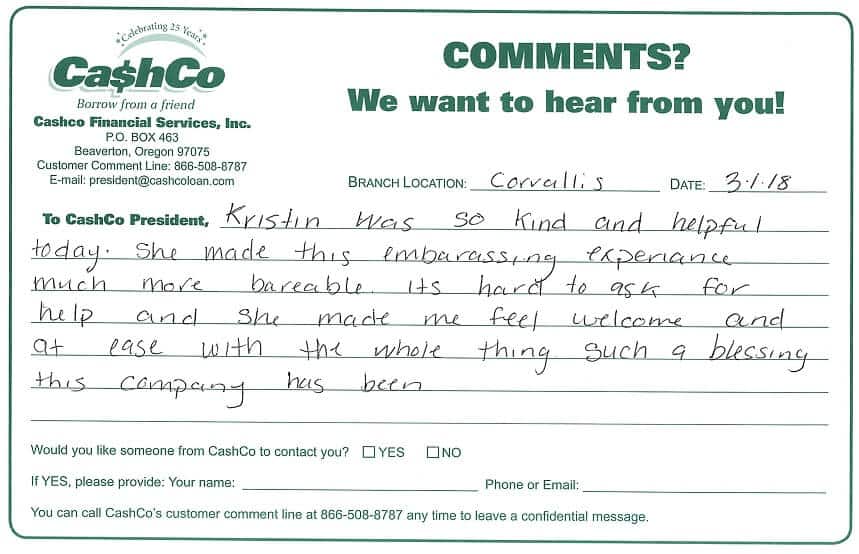 Celebrating 25 Years
Ca$hCo
Borrow from a friend
Cashco Financial Services, Inc.
P.O. BOX 463
Beaverton, Oregon 97075
Customer Comment Line: 866-508-8787
E-mail: president@cashcoloan.com
COMMENTS?
We want to hear from you!
BRANCH LOCATION: Corvallis DATE: 3.1.18
To CashCo President, Kristin was so kind and helpful
today. She made this embarassing experiance
much more bareable. Its hard to ask for
help and she made me feel welcome and
at ease with the whole thing. Such a blessing
this company has been
Would you like someone from CashCo to contact you? ☐ YES ☐ NO
If YES, please provide: Your name: Phone or Email:
You can call CashCo's customer comment line at 866-508-8787 any time to leave a confidential message.